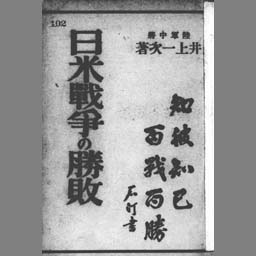 192
陸軍中將
井上一次著
日米戰爭の勝敗
知彼知己
百戰百勝
石汀書